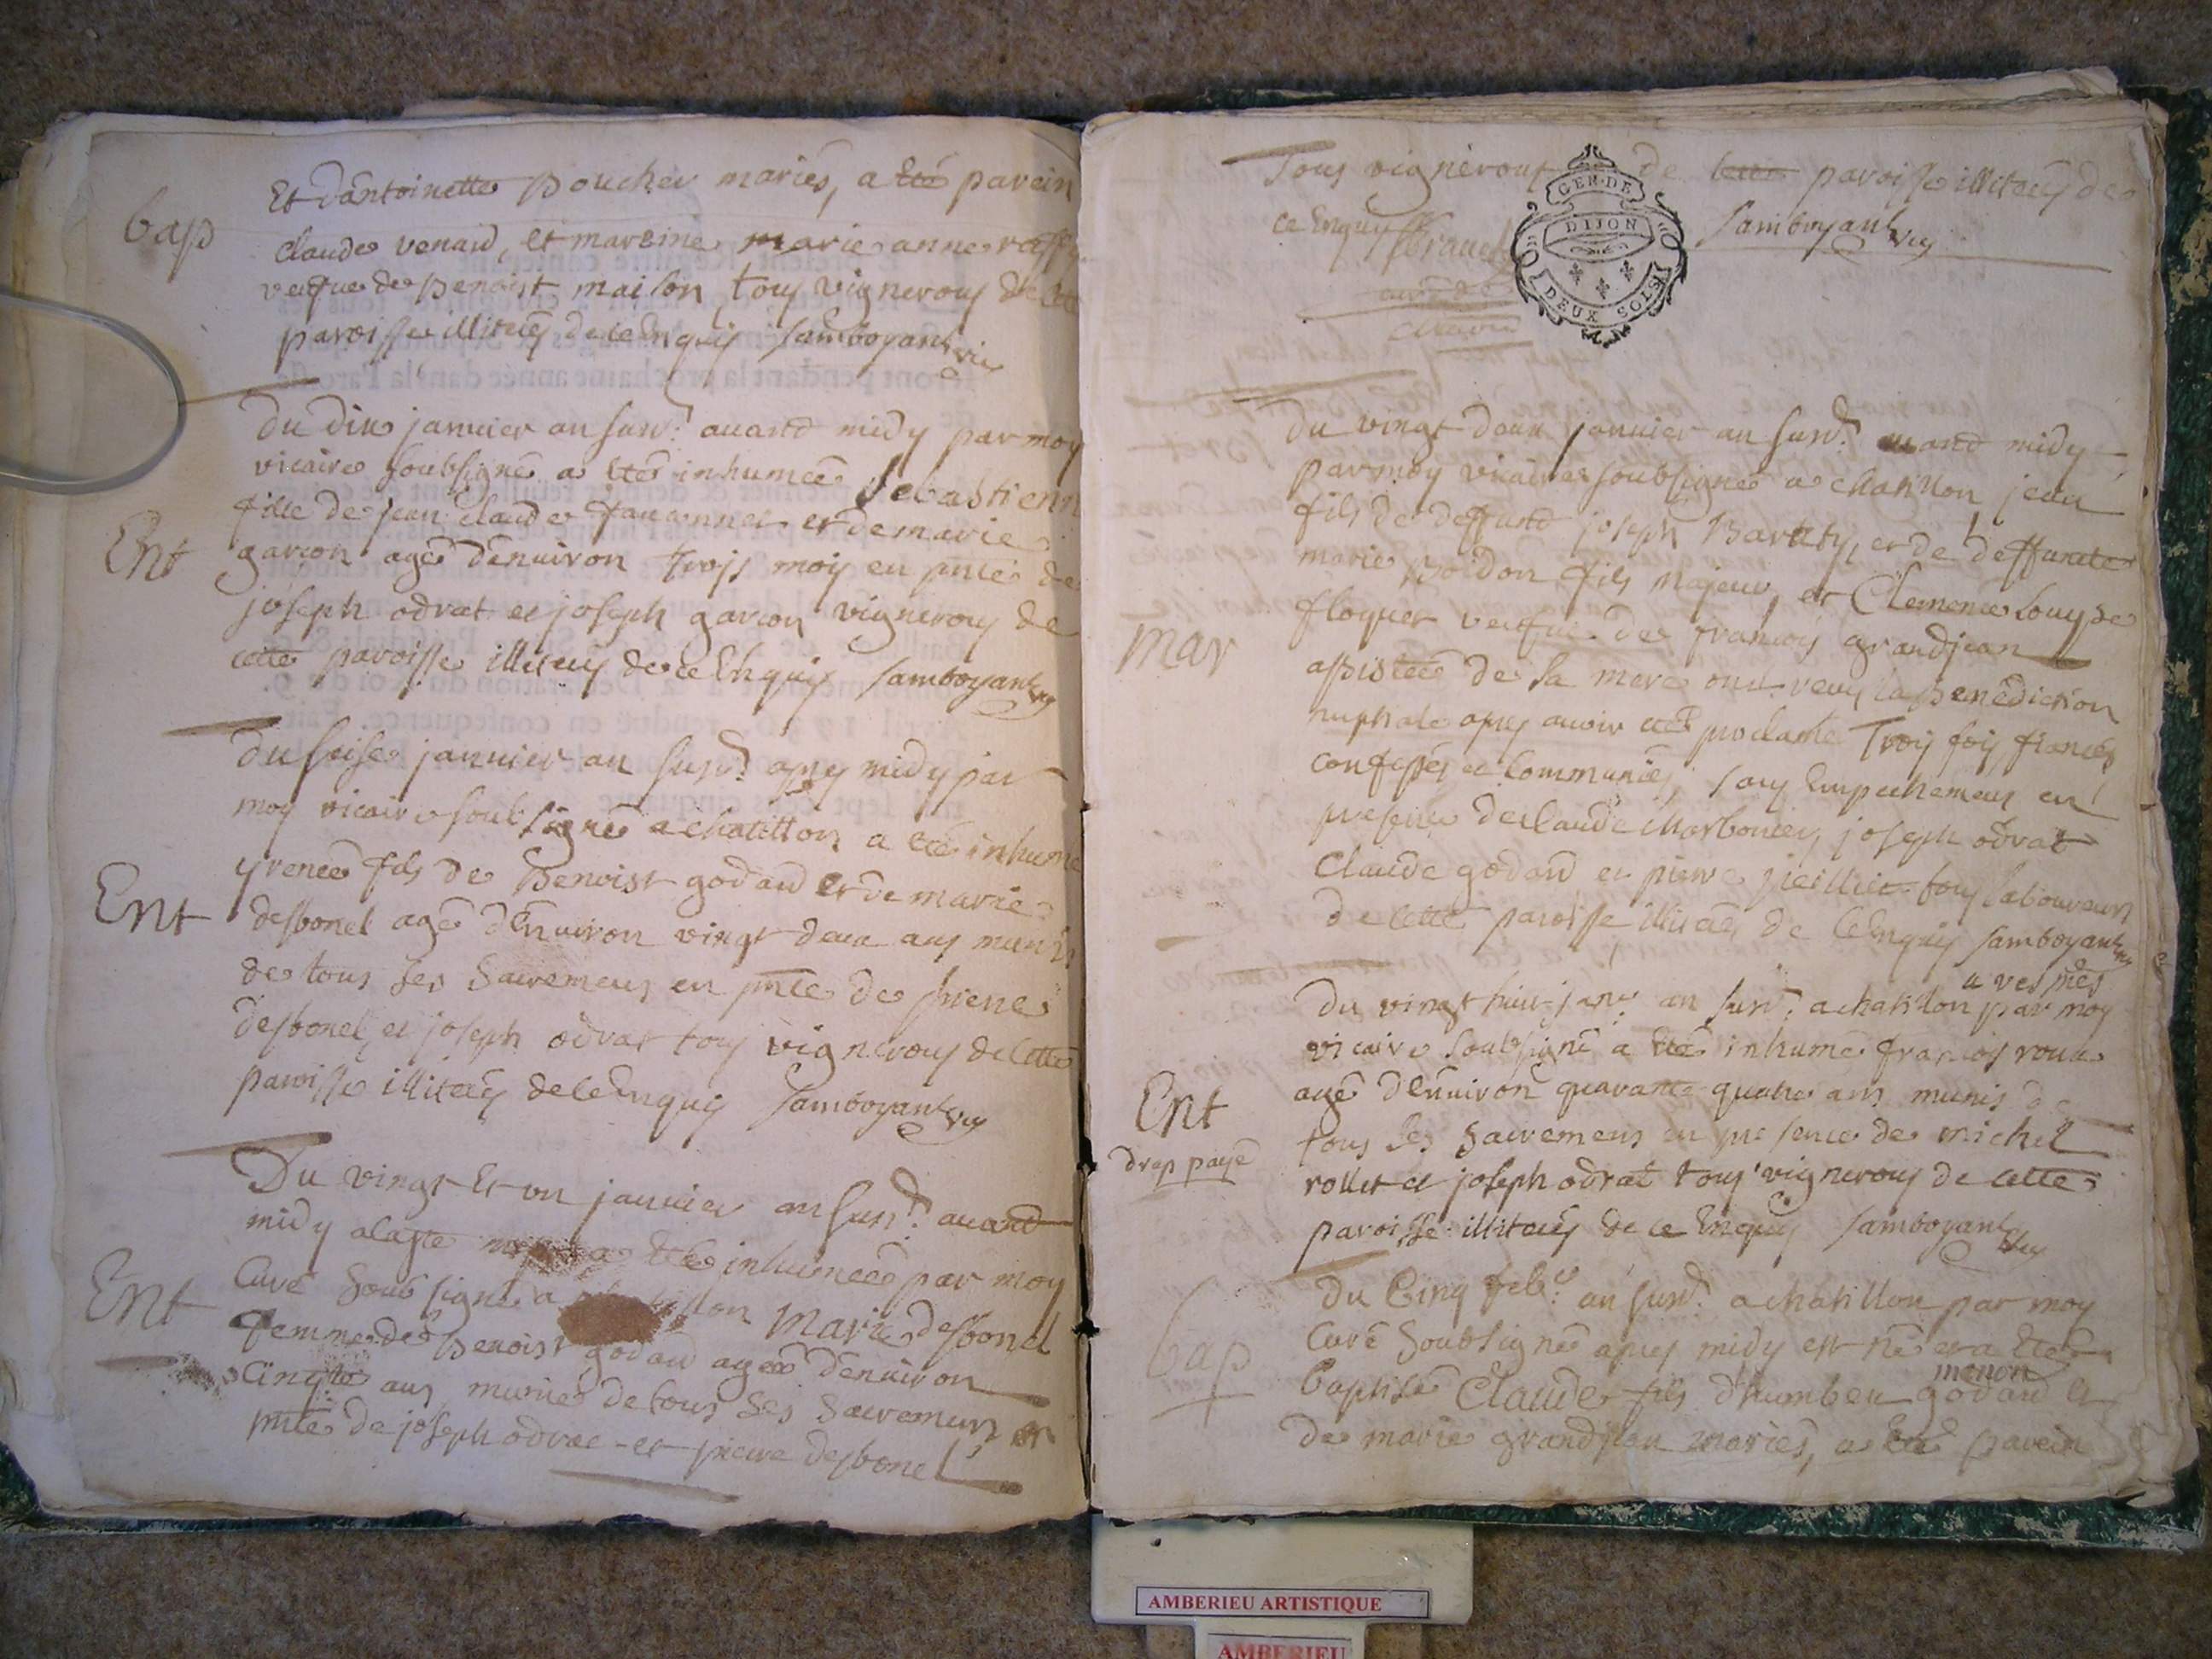 bap
Et d'antoinette Boucher mariés, a été parein
claude venard, et mareine marie anne
veufue de Benoist maison tous vignerons de cette
paroisse illiterés de ce Enquis Jamboyant vic
Du dix januier an susd. auant midy par moy
vicaire soubsigné a été inhumée Sebastienn
Ent
fille de jean claude fauconnet et de marie
garçon agée d'enuiron trois mois en pnce de
joseph odrat et joseph garçon vignerons de
cette paroisse illiterés de ce Enquis Jamboyant vic
Du seise januier an susd. apres midy par
moy vicaire soubsigné a chatillon a été inhumé
Ent
yrenée fils de Benoist godard et de marie
desbonel agé d'Enuiron vingt deux ans munis
de tous ses Sacremens en pnce de pierre
desbonel, et joseph odrat tous vignerons de cette
paroisse illiterés de ce Enquis Jamboyant vic
Du vingt et un januier an susd. auant
midy a été inhumée par moy
Ent
Curé Soubsigné a Marie desbonel
femme de Benoist godard agée d'enuiron
ans munie de tous ses Sacremens en
pnce de joseph odrat et pierre desbonel
Tous vignerons de paroisse illiterés de
ce Enquis Jamboyant vic
GEN. DE
DIJON
DEUX SOLS
Du vingt deux januier an susd. auant midy
par moy vicaire soubsigné a chatillon, jean
fils de deffunt joseph et de deffuncte
marie fils majeur, et Clemence Louyse
mar
floquet veufue de francois grandjean
assistée de sa mere ont reçus la Benediction
nuptiale apres auoir été proclamé Trois fois fiancés
confessés et Communiés, sans Empechemens en
presence de claude joseph odrat
Claude godard et pierre tous laboureurs
de cette paroisse illiterés de ce Enquis Jamboyant vic
a vespres
Du vingt huit janr. an susd. a chatillon par moy
vicaire soubsigné a été inhumé francois roux
Ent
agé d'Enuiron quarante quatre ans munis de
drap payé
tous ses Sacremens en presence de michel
rollet et joseph odrat tous vignerons de cette
paroisse illiterés de ce Enquis Jamboyant vic
Du Cinq febr. an susd. a chatillon par moy
bap
Curé Soubsigné apres midy est né et a été
menon
baptisé Claude fils d'humbert godard et
de marie grandjean mariés, a été parein
AMBERIEU ARTISTIQUE
AMBERIEU